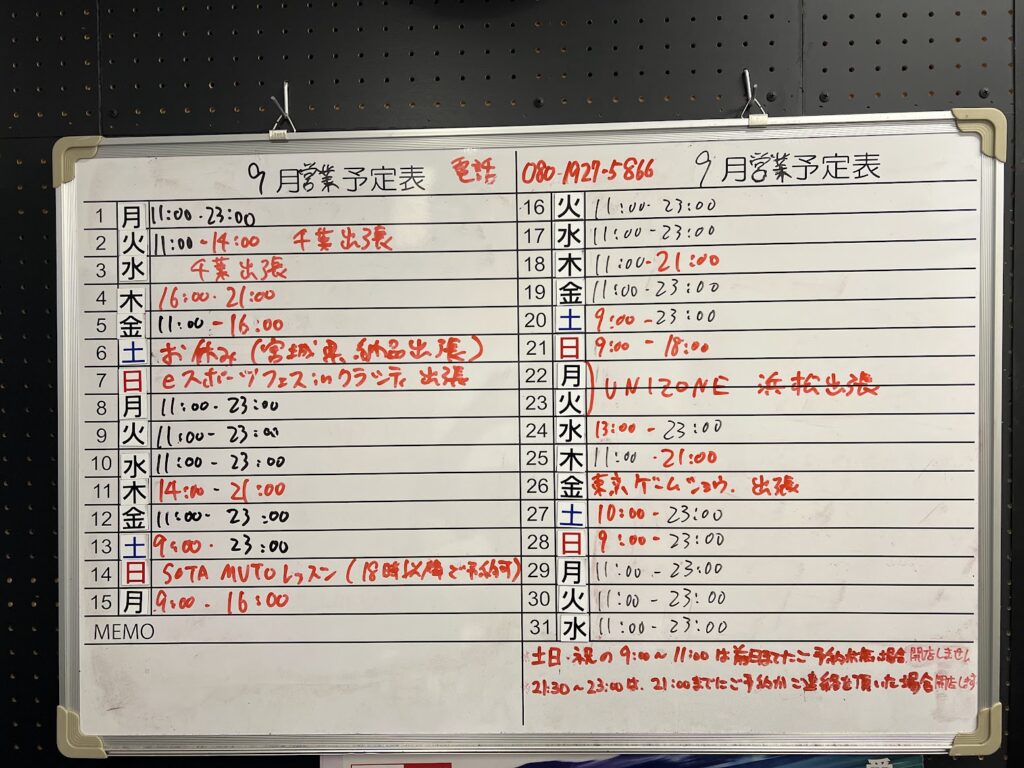 9月営業予定表 電話
1 月 11:00-23:00
2 火 11:00-14:00 千葉出張
3 水 千葉出張
4 木 16:00-21:00
5 金 11:00-16:00
6 土 お休み(宮城県納品出張)
7 日 eスポーツフェスinクラシティ出張
8 月 11:00-23:00
9 火 11:00-23:00
10 水 11:00-23:00
11 木 14:00-21:00
12 金 11:00-23:00
13 土 9:00-23:00
14 日 SOTA MUTOレッスン(18時以降ご予約可)
15 月 9:00-16:00
MEMO
080-1927-5866 9月営業予定表
16 火 11:00-23:00
17 水 11:00-23:00
18 木 11:00-21:00
19 金 11:00-23:00
20 土 9:00-23:00
21 日 9:00-18:00
22 月 UNIZONE 浜松出張
23 火
24 水 13:00-23:00
25 木 11:00-21:00
26 金 東京ゲームショウ. 出張
27 土 10:00-23:00
28 日 9:00-23:00
29 月 11:00-23:00
30 火 11:00-23:00
31 水 11:00-23:00
土日・祝の9:00~11:00は前日までにご予約無い場合開店しません
21:30~23:00は、21:00までにご予約かご連絡を頂いた場合開店します